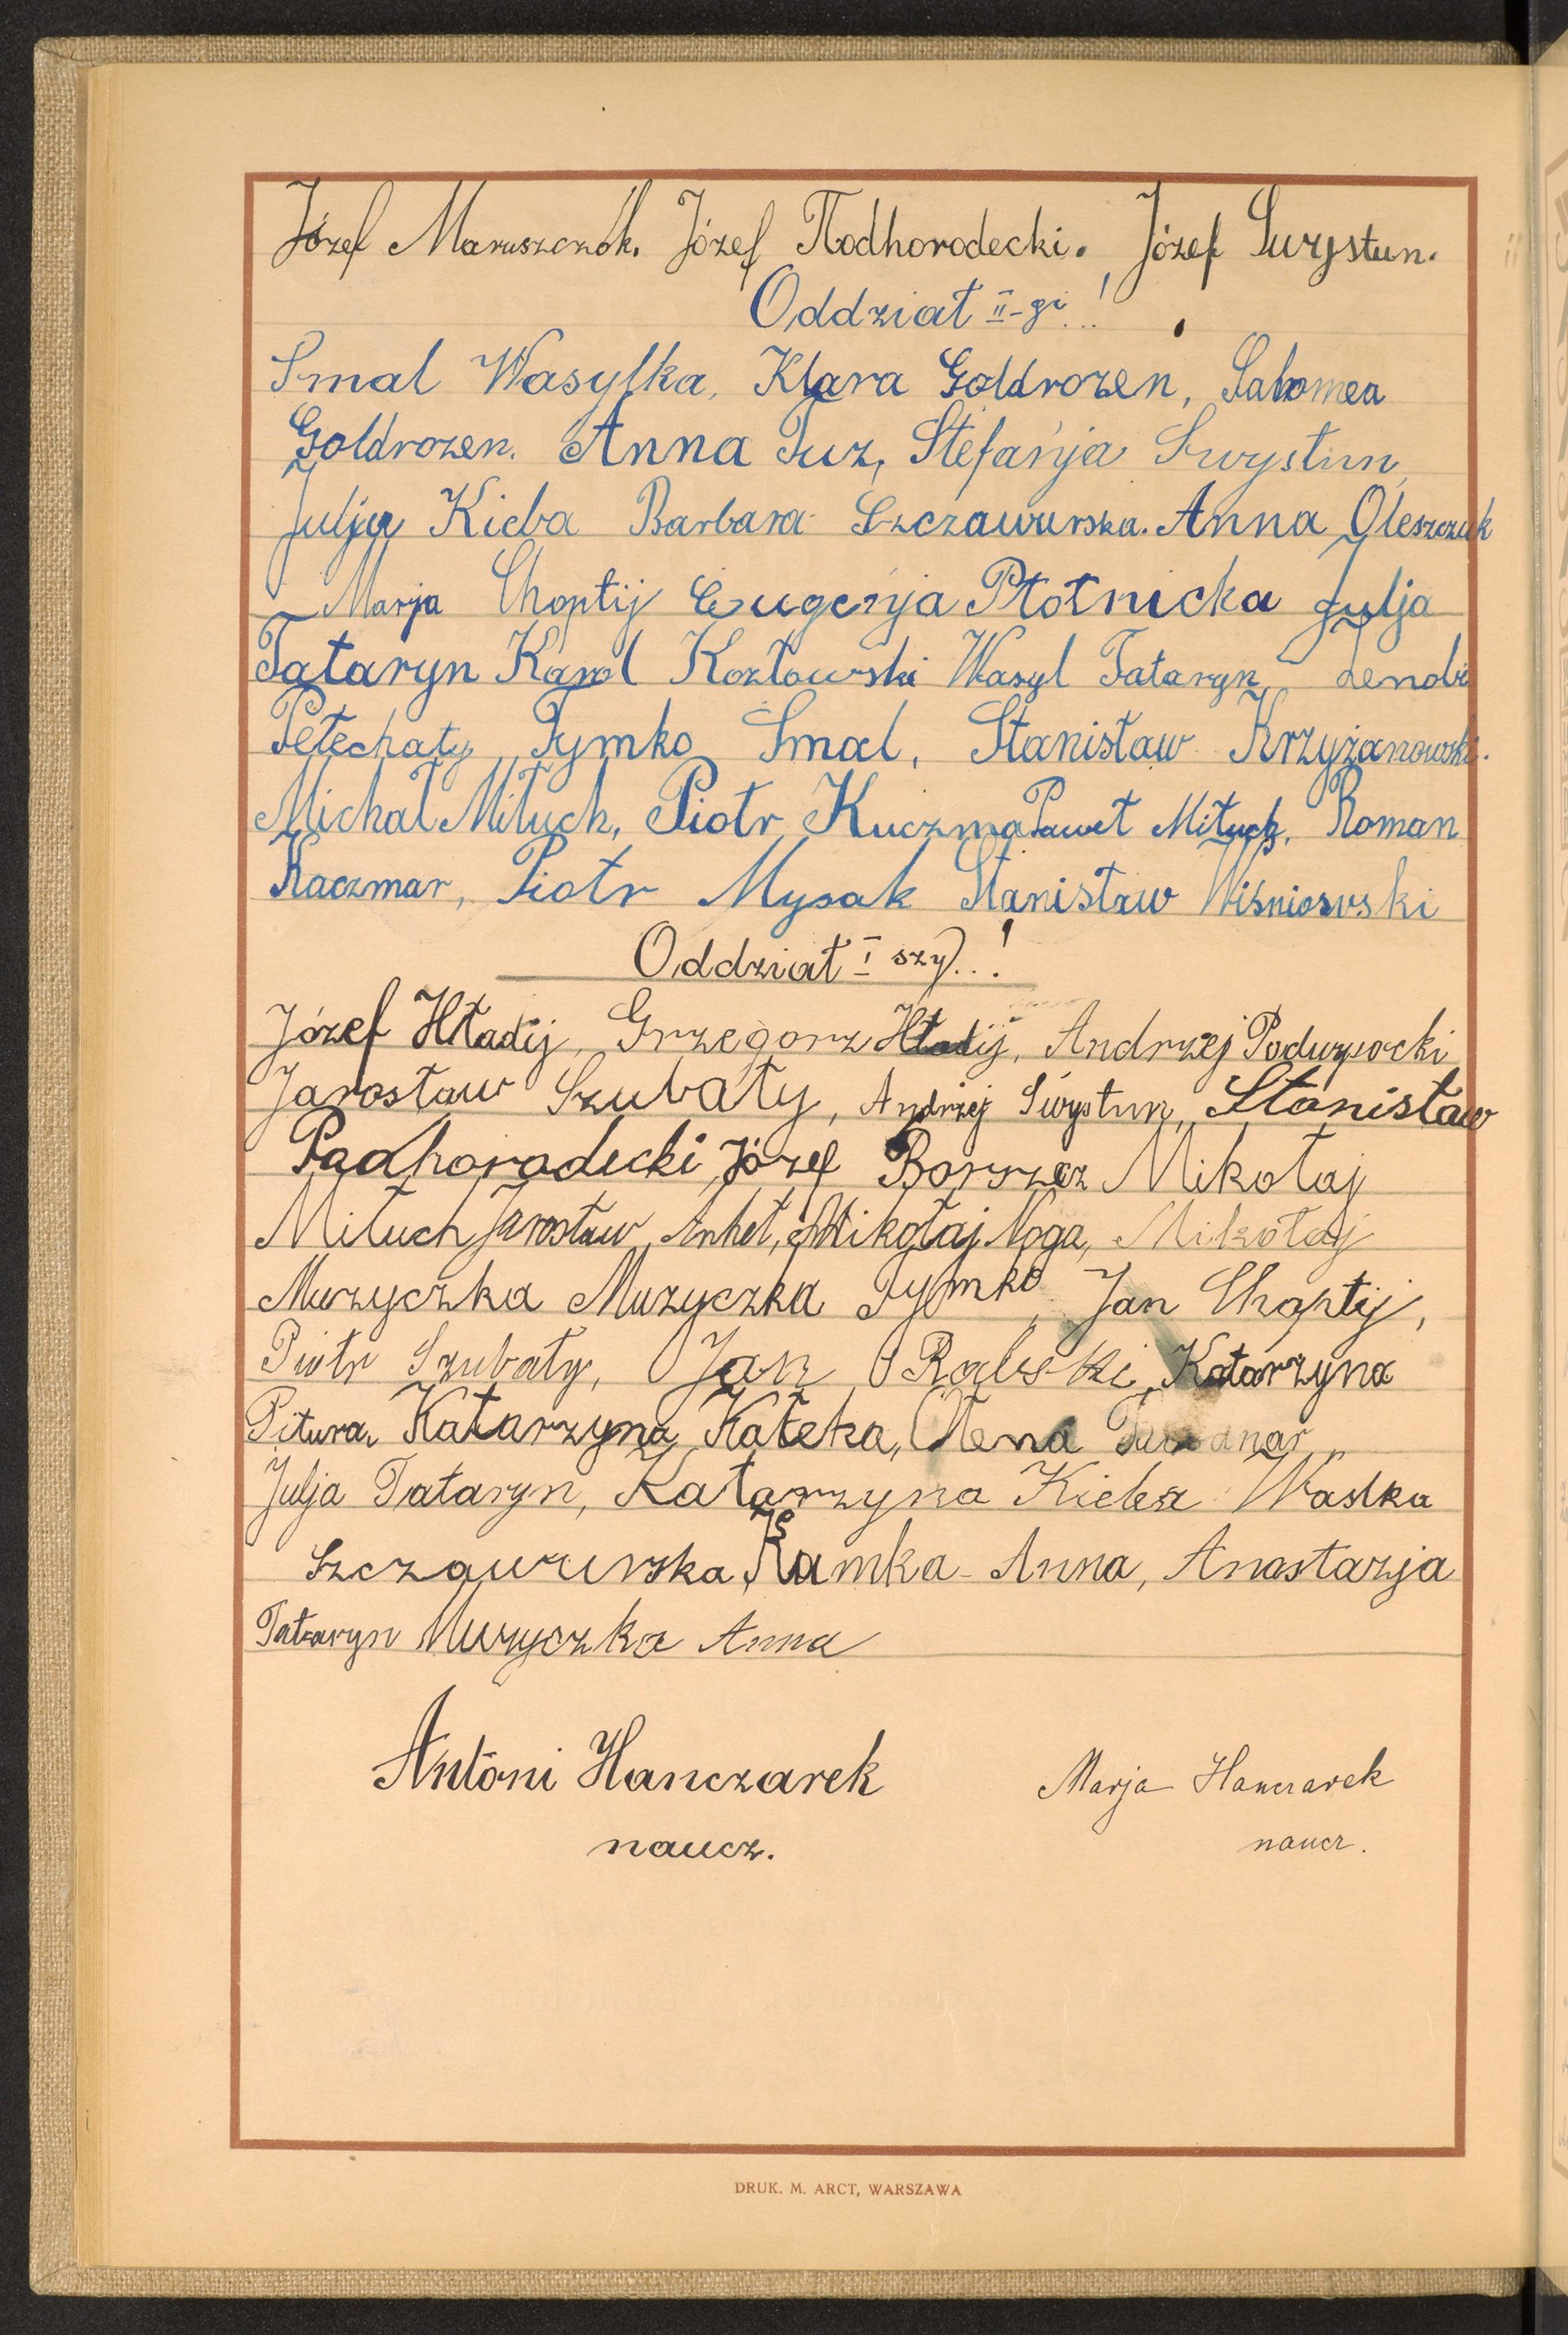 Józef Maruszczok. Józef Podhorodecki. Józef Swystun.
Oddział II-gi...!
Smal Wasylka, Klara Goldrozen, Salomea
Goldrozen. Anna Tuz, Stefańja Swystun,
Julja Kieba Barbara Szczawurska. Anna Oleszczuk
Marja Choptij Eugenja Płotnicka Julja
Tataryn Karol Kozłowski Wasyl Tataryn,
Pełechaty Tymko Smal, Stanisław Krzyżanowski.
Michał Miłuch, Piotr Kuczma Paweł Miłuch, Roman
Kaczmar, Piotr Mysak Stanisław Wiśniowski
Oddział I szy...!
Józef Hładij, Grzegorz Hładij, Andrzej Podwysocki
Jarosław Szubaty, Andrzej Swystun, Stanisław
Padhoradecki, Józef Mikołaj
Miłuch Jarosław Anhel, Mikołaj Noga, Mikołaj
Muzyczka Muzyczka Tymko, Jan Choptij,
Piotr Szubaty, Jan Ralski, Katarzyna
Pitura, Katarzyna Kałeka, Ołena
Julja Tataryn, Katarzyna Kieba Waslka
Szczawurska, Kamka Anna, Anastazja
Tataryn Muzyczka Anna
Antoni Hanczarek Marja Hanczarek
naucz. naucz.
DRUK. M. ARCT, WARSZAWA